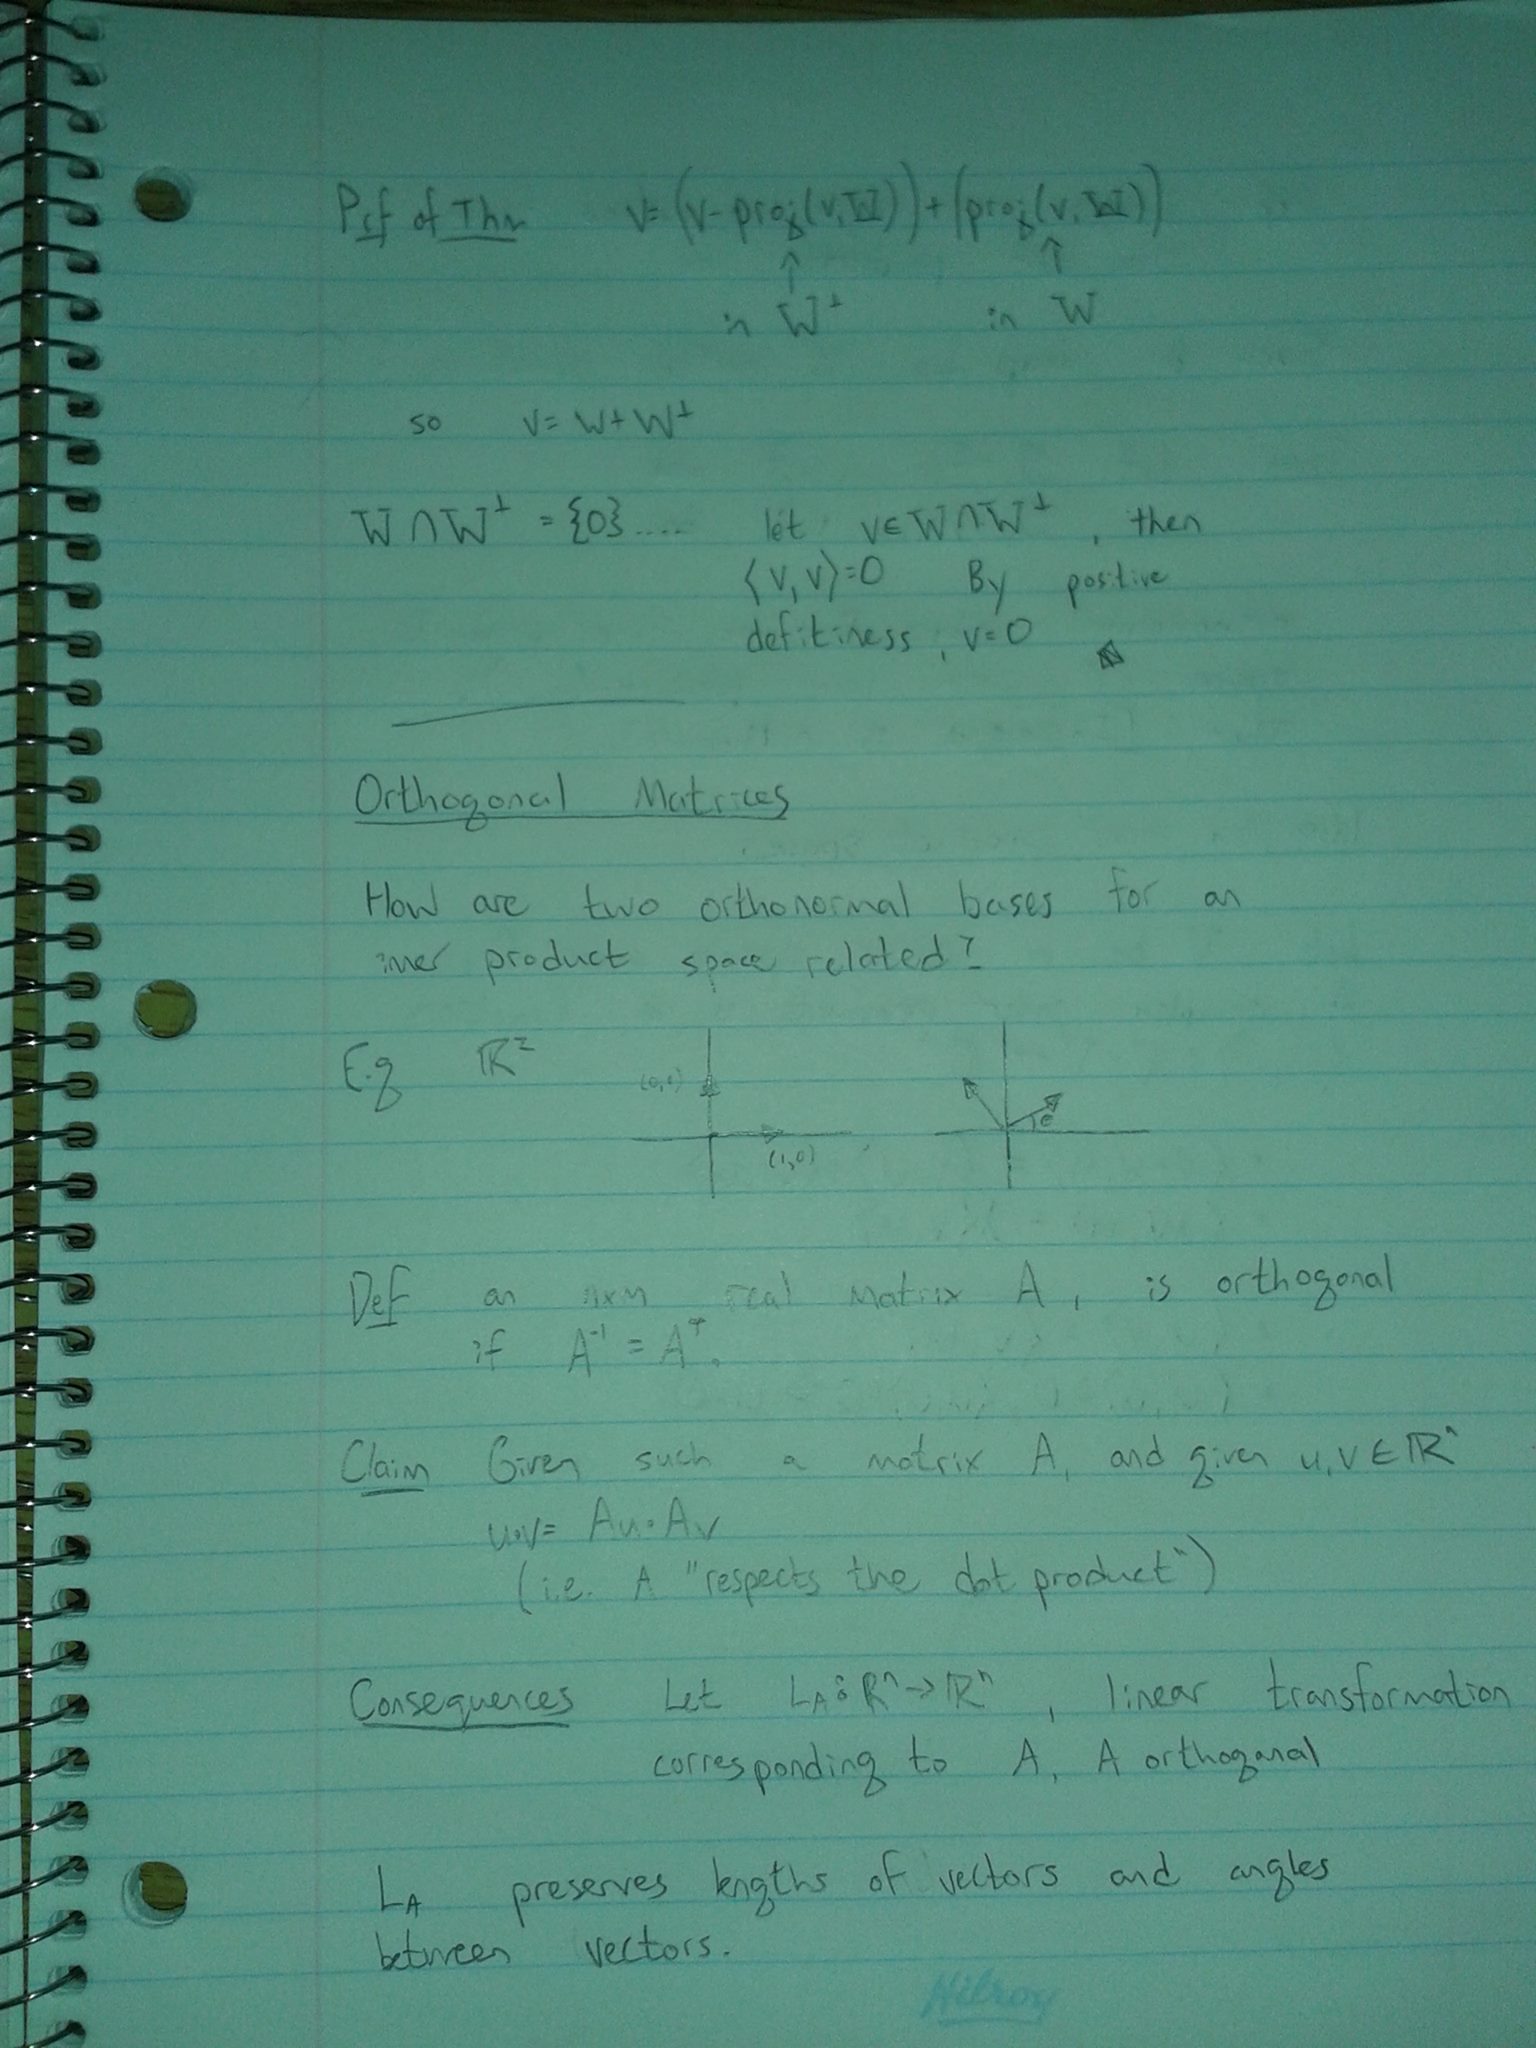 Prf of Thm v= (v- proj(v,W)) + (proj(v,W))
↑ ↑
in W⊥ in W
so v= W+W⊥
W∩W⊥ = {0}.... let v∈W∩W⊥, then
⟨v,v⟩=0 By positive
defitiness, v=0
Orthogonal Matrices
How are two orthonormal bases for an
inner product space related?
E.g ℝ²
(0,1)
(1,0)
θ
Def an nxn real matrix A, is orthogonal
if A⁻¹ = Aᵀ.
Claim Given such a matrix A, and given u,v∈ℝⁿ
u•v= Au•Av
(i.e. A "respects the dot product")
Consequences Let L_A: ℝⁿ→ℝⁿ, linear transformation
corresponding to A, A orthogonal
L_A preserves lengths of vectors and angles
between vectors.
Hilroy